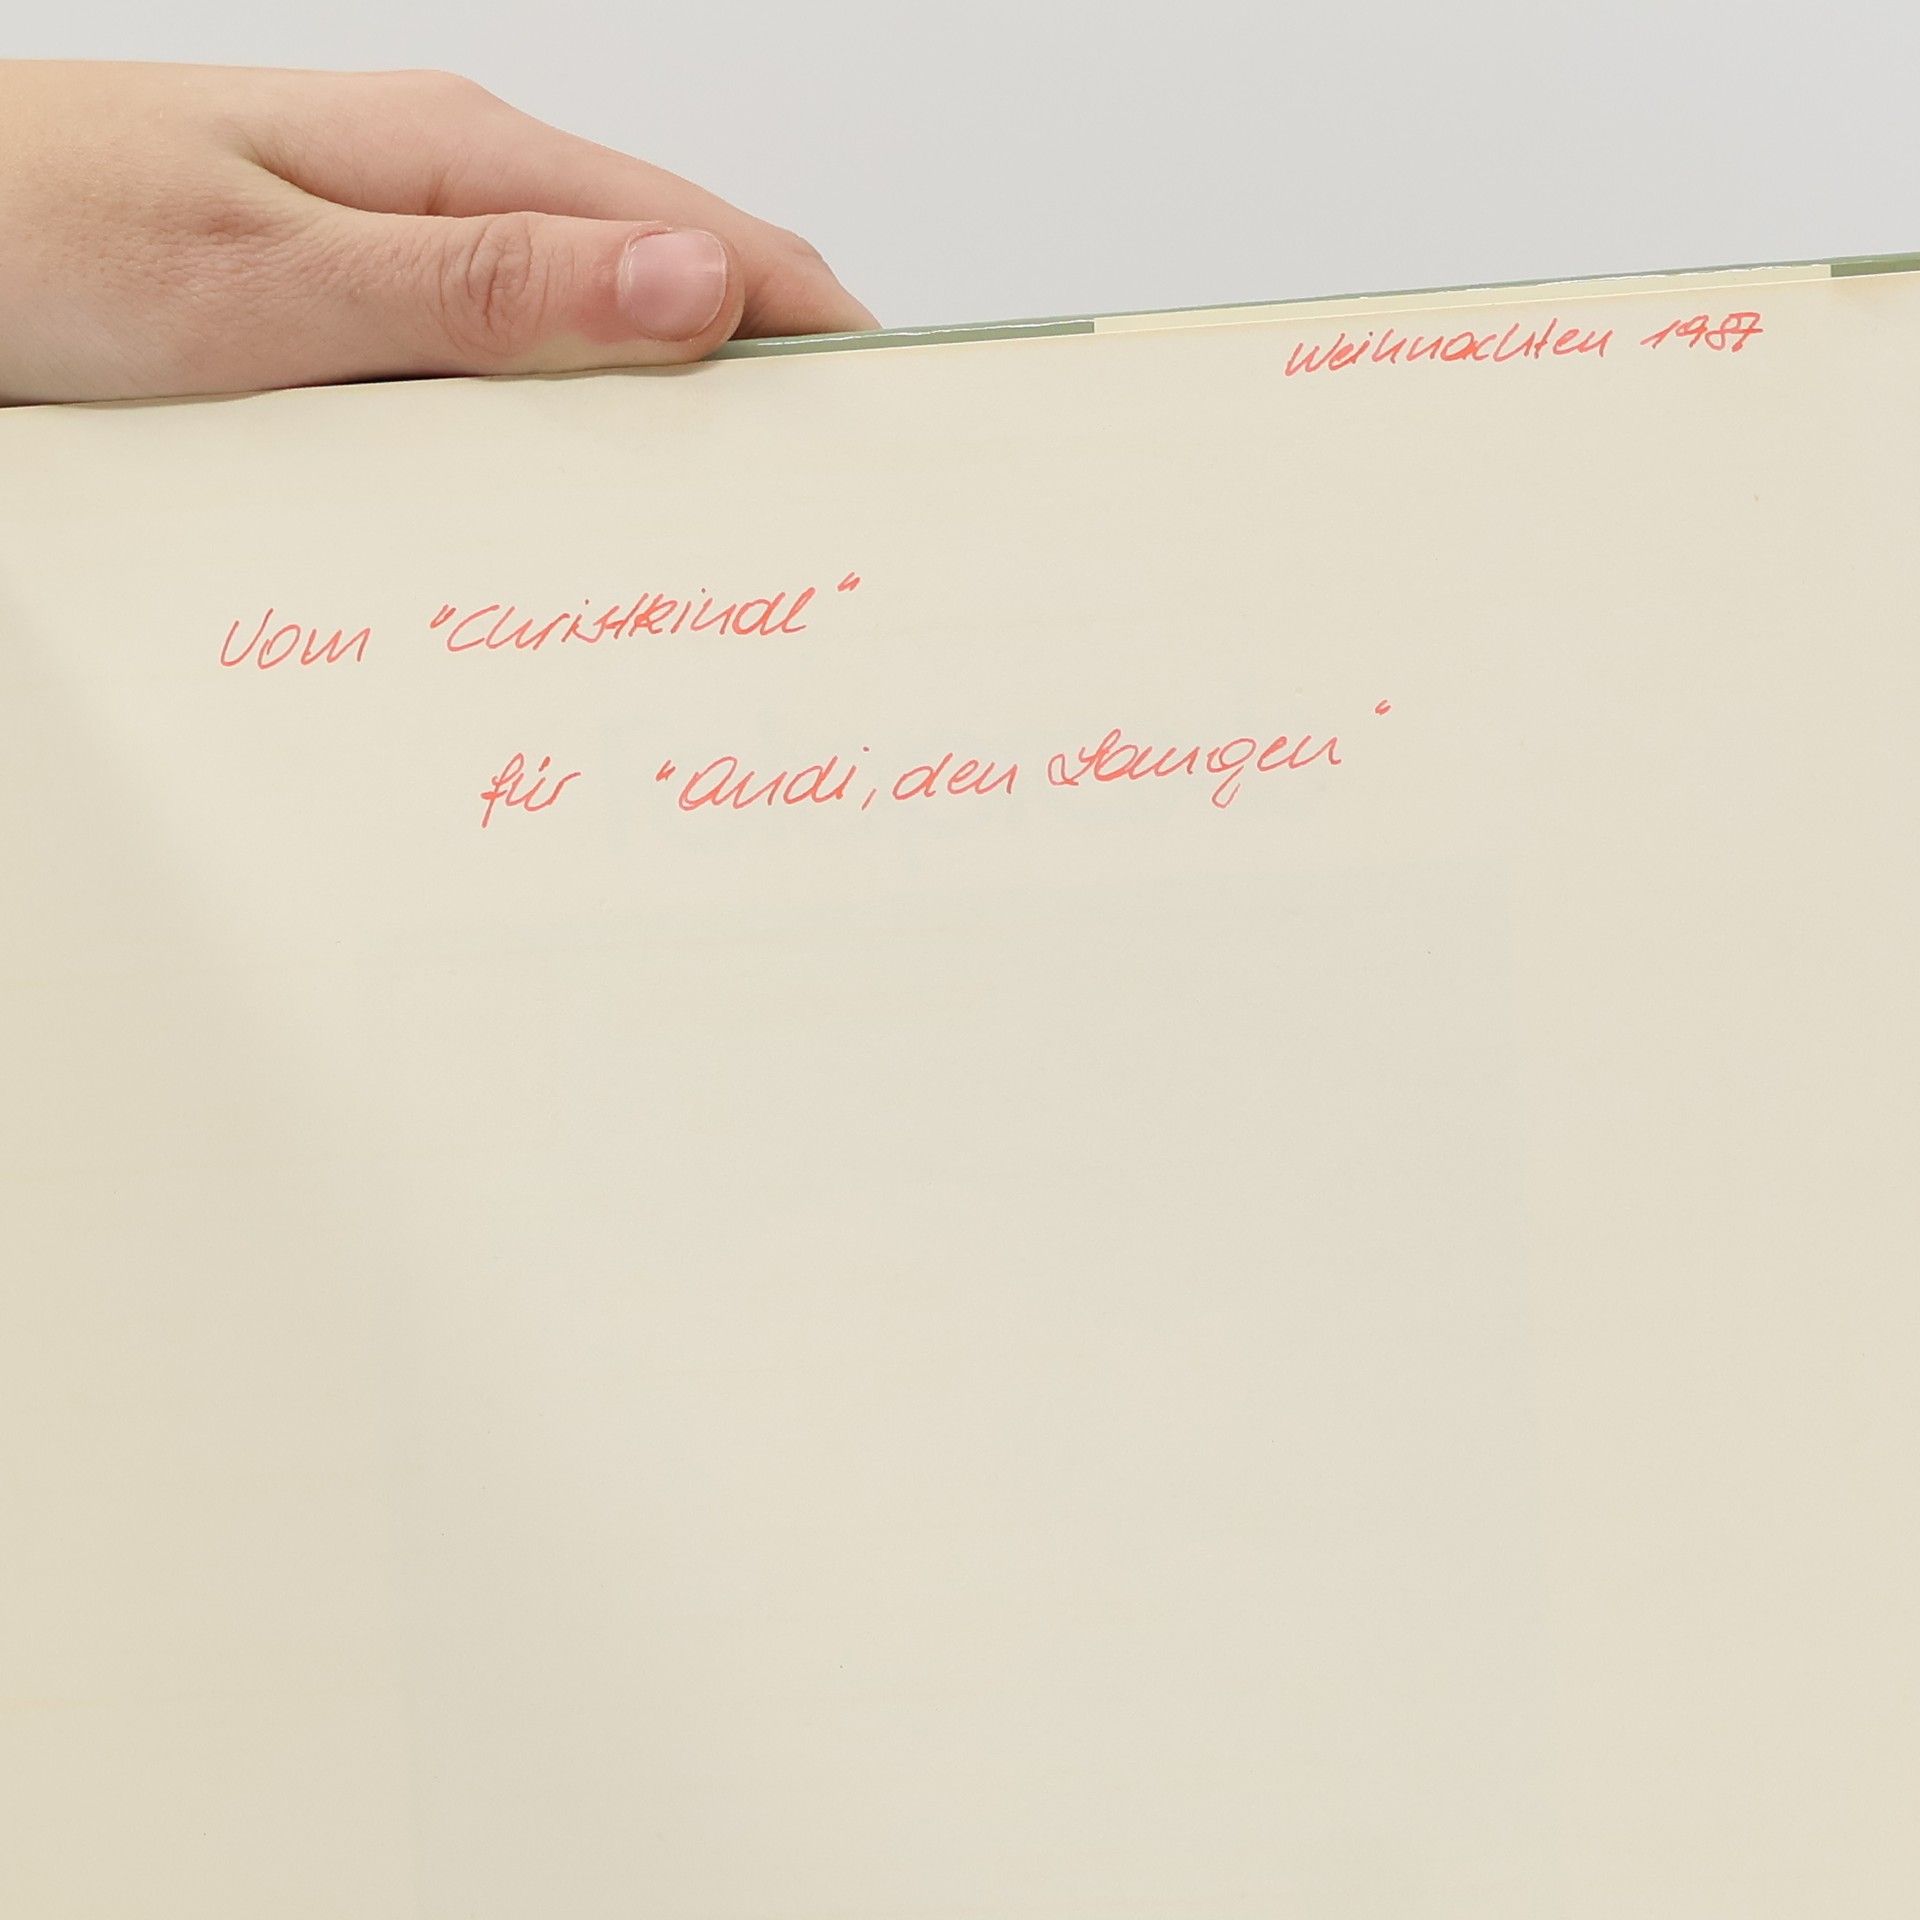 Weihnachten 1987
Vom "Christkindl"
für "Andi, den Langen"